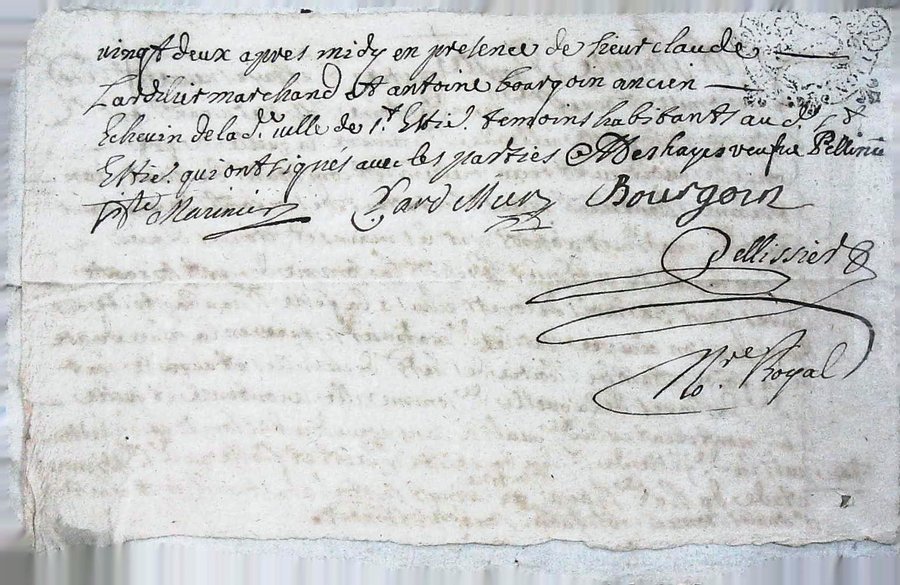 vingt deux apres midy en presence de sieur claude
Lardilier marchand et antoine bourgoin ancien
Echevin de la d.e ville de s.t Etti.e temoins habitants aud. s.t
Etti.e qui ont signés avec les parties Deshayes veufve
Marinier Bourgoin
Pellissier
No.re Royal